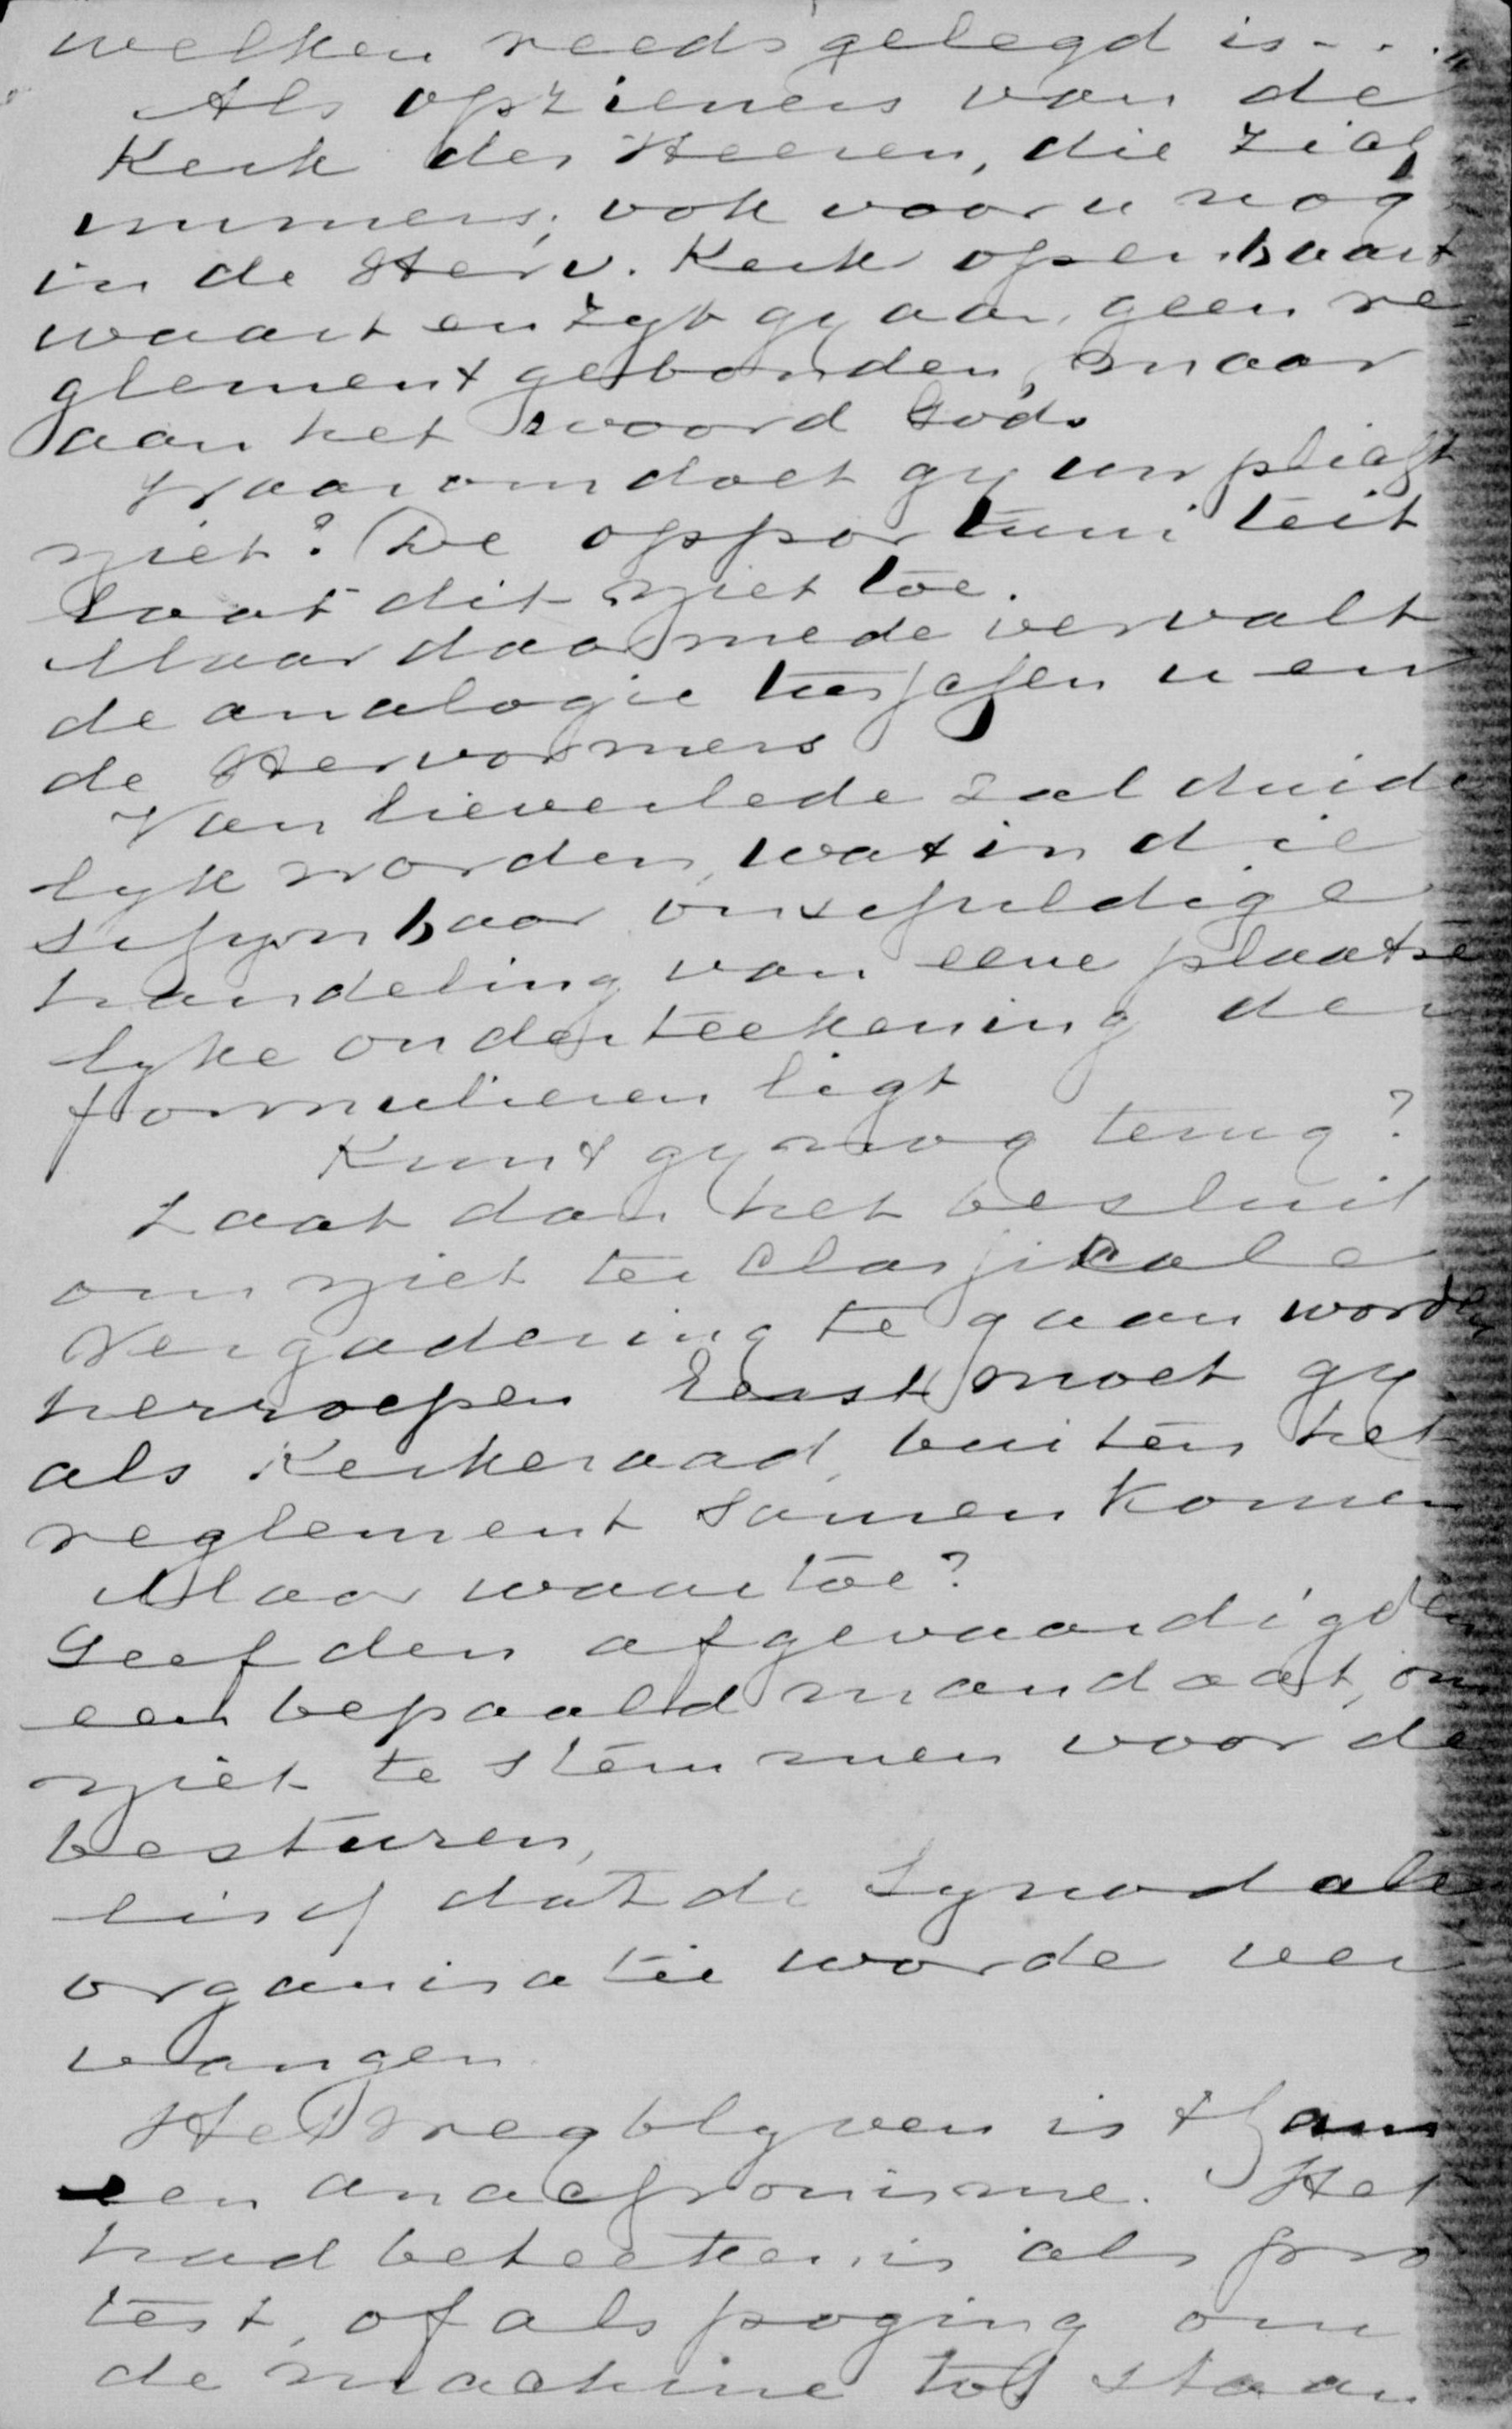 welken reeds gelegd is - . . "
Als opzieners van de
Kerk des Heeren, die zich
immers, ook voor u nog
in de Herv. Kerk openbaart
waart en zyt gy aan geen re
glement gebonden, maar
aan het woord Gods
Waarom doet gy uw plicht
niet? De opportuniteit
laat dit niet toe.
Maar daarmede vervalt
de analogie tusschen u en
de Hervormers
Van lieverlede zal duide
lyk worden, wat in die
schynbaar onschuldige
handeling van eene plaatse
lyke onderteekening der
formulieren ligt
Kunt gy nog terug?
Laat dan het besluit
om niet ter Classikale
Vergadering te gaan worden
herroepen Eerst moet gy
als Kerkeraad, buiten het
reglement samenkomen
Maar waartoe?
Geef den afgevaardigden
een bepaald mandaat, om
niet te stemmen voor de
besturen,
eisch dat de Synodale
organisatie worde ver
vangen
Het wegblyven is thans
een anachronisme. Het
had beteekenis als pro
test, of als poging om
de machine tot staan